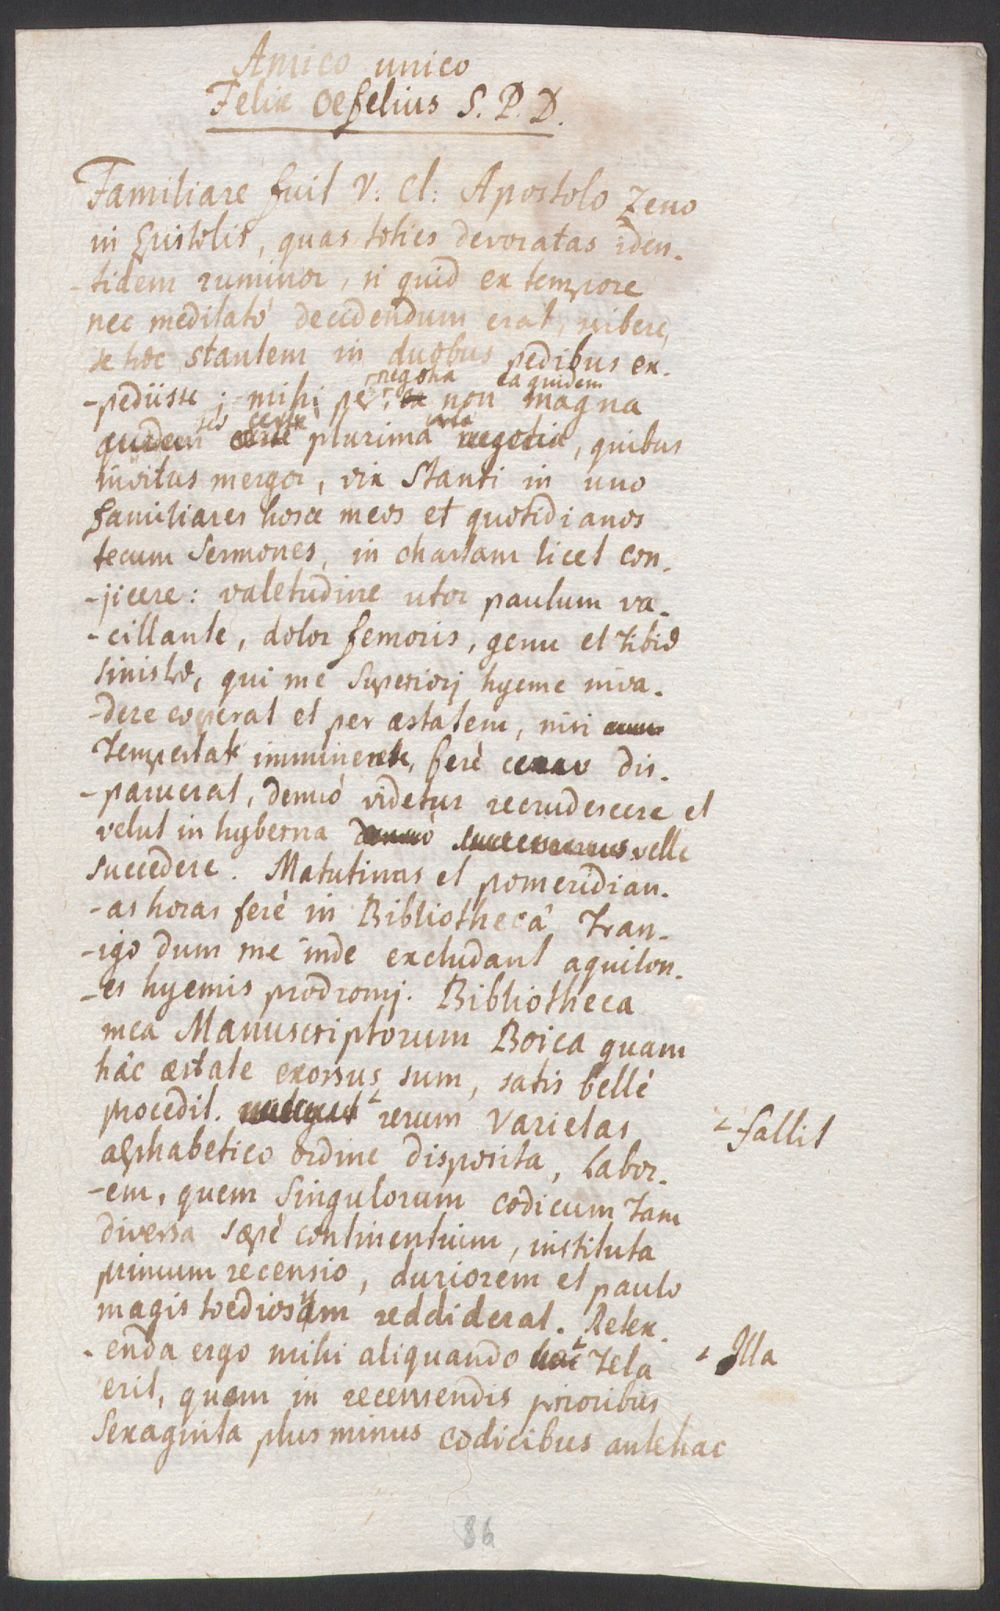 Amico unico
Felix Oefelius S. P. D.
Familiare fuit V: Cl: Apostolo Zeno
in Epistolis, quas toties devoratas iden-
-tidem ruminor, si quid ex tempore
nec meditatò decidendum erat, scribere,
se hoc stantem in duobus pedibus ex-
negotia ea quidem
-pediisse; mihi per non magna
sed certè
quidem plurima negotia, quibus
invitus mergor, vix Stanti in uno
familiares hosce meos et quotidianos
tecum Sermones, in chartam licet con-
-jicere: valetudine utor paulum va-
-cillante, dolor femoris, genu et tibiæ
sinistræ, qui me Superiorj hyeme inva-
-dere coeperat et per æstatem, nisi
Tempestate imminente, ferè dis-
-paruerat, denuò videtur recrudescere et
velut in hyberna velle
succedere. Matutinas et pomeridian-
-as horas ferè in Bibliothecâ Tran-
-igo dum me inde excludant aquilon-
-es hyemis prodromj. Bibliotheca
mea Manuscriptorum Boica quam
hâc æstate exorsus sum, satis bellè
procedit. rerum Varietas
fallit
alphabetico ordine disposita, Labor-
-em, quem Singulorum codicum Tam
diversa sæpè continentium, instituta
primum recensio, duriorem et paulo
magis toediosum reddiderat. Retex-
-enda ergo mihi aliquando Tela
Illa
erit, quam in recensendis prioribus
Sexaginta plus minus codicibus antehac
86